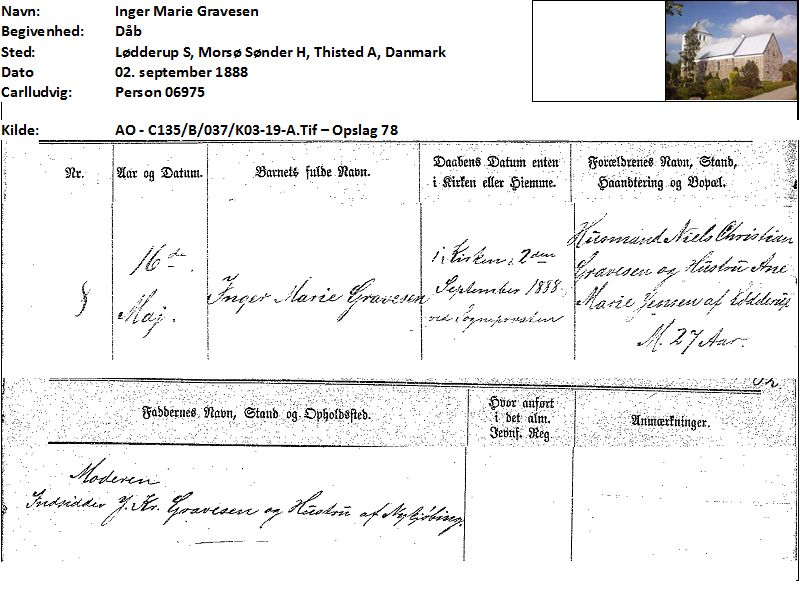 Navn: Inger Marie Gravesen
Begivenhed: Dåb
Sted: Lødderup S, Morsø Sønder H, Thisted A, Danmark
Dato 02. september 1888
Carlludvig: Person 06975
Kilde: AO - C135/B/037/K03-19-A.Tif – Opslag 78
Nr.
Aar og Datum.
Barnets fulde Navn.
Daabens Datum enten
i Kirken eller Hiemme.
Forældrenes Navn, Stand,
Haandtering og Bopæl.
8
16de
Maj.
Inger Marie Gravesen
i Kirken, 2den
September 1888
ved Sognepræsten
Husmand Niels Christian
Gravesen og Hustru Ane
Marie Jensen af Lødderup
M. 27 Aar.
Faddernes Navn, Stand og Opholdsted.
Hvor anført
i det alm.
Jevnf. Reg
Anmærkninger.
Moderen
Indsidder J. Kr. Gravesen og Hustru af Nykjøbing.